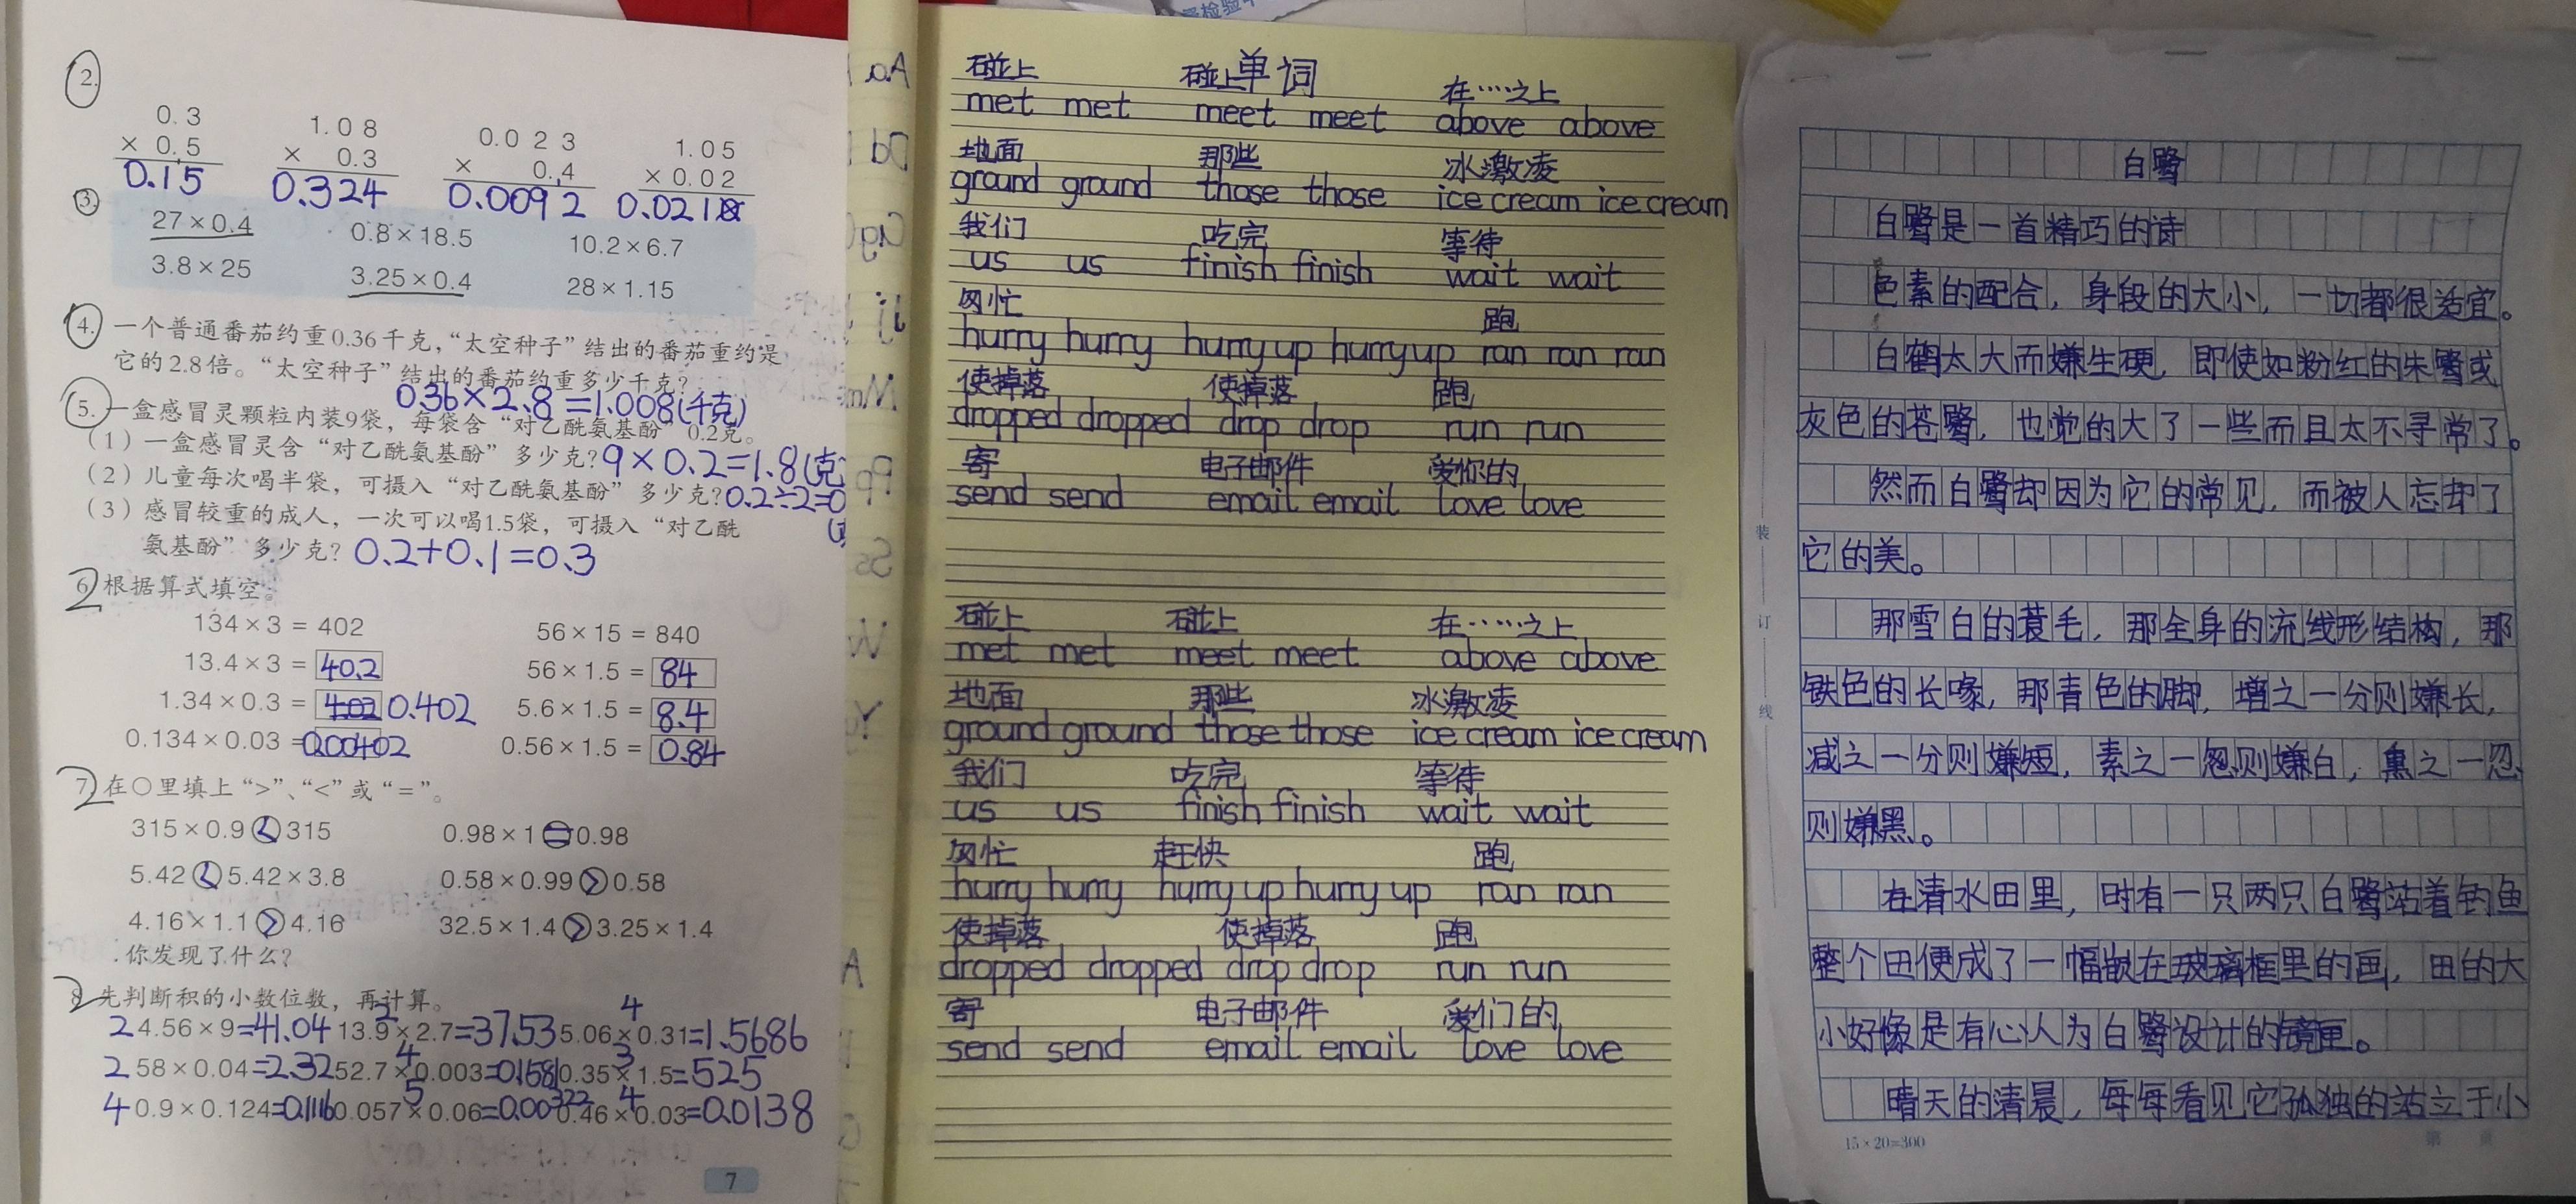 2.
0.3 1.08 0.023 1.05
× 0.5 × 0.3 × 0.4 × 0.02
0.15 0.324 0.0092 0.021
3.
27×0.4 0.8×18.5 10.2×6.7
3.8×25 3.25×0.4 28×1.15
4. 一个普通番茄约重0.36千克，“太空种子”结出的番茄重约是
它的2.8倍。“太空种子”结出的番茄约重多少千克？
0.36×2.8=1.008(千克)
5. 一盒感冒灵颗粒内装9袋，每袋含“对乙酰氨基酚”0.2克。
（1）一盒感冒灵含“对乙酰氨基酚”多少克？9×0.2=1.8(克
（2）儿童每次喝半袋，可摄入“对乙酰氨基酚”多少克？0.2÷2=0
（3）感冒较重的成人，一次可以喝1.5袋，可摄入“对乙酰
氨基酚”多少克？0.2+0.1=0.3
6. 根据算式填空。
134×3=402 56×15=840
13.4×3=40.2 56×1.5=84
1.34×0.3=0.402 5.6×1.5=8.4
0.134×0.03=0.00402 0.56×1.5=0.84
7. 在○里填上“>”、“<”或“=”。
315×0.9<315 0.98×1=0.98
5.42<5.42×3.8 0.58×0.99>0.58
4.16×1.1>4.16 32.5×1.4>3.25×1.4
你发现了什么？
8. 先判断积的小数位数，再计算。
2 4.56×9=41.04 2 13.9×2.7=37.53 4 5.06×0.31=1.5686
2 58×0.04=2.32 4 52.7×0.003=0.1581 3 0.35×1.5=525
4 0.9×0.124=0.1116 5 0.057×0.06=0.00 4 0.46×0.03=0.0138
7
单词
碰上 碰上 在……之上
met met meet meet above above
地面 那些 冰激凌
ground ground those those ice cream ice cream
我们 吃完 等待
us us finish finish wait wait
匆忙 跑
hurry hurry hurry up hurry up ran ran ran
使掉落 使掉落 跑
dropped dropped drop drop run run
寄 电子邮件 爱你的
send send email email love love
碰上 碰上 在……之上
met met meet meet above above
地面 那些 冰激凌
ground ground those those ice cream ice cream
我们 吃完 等待
us us finish finish wait wait
匆忙 赶快 跑
hurry hurry hurry up hurry up ran ran
使掉落 使掉落 跑
dropped dropped drop drop run run
寄 电子邮件 爱们的
send send email email love love
装
订
线
白鹭
白鹭是一首精巧的诗
色素的配合，身段的大小，一切都很适宜。
白鹤太大而嫌生硬，即使如粉红的朱鹭或
灰色的苍鹭，也觉的大了一些而且太不寻常了。
然而白鹭却因为它的常见，而被人忘却了
它的美。
那雪白的蓑毛，那全身的流线形结构，那
铁色的长喙，那青色的脚，增之一分则嫌长，
减之一分则嫌短，素之一忽则嫌白，黑之一忽
则嫌黑。
在清水田里，时有一只两只白鹭站着钓鱼
整个田便成了一幅嵌在玻璃框里的画，田的大
小好像是有心人为白鹭设计的镜匣。
晴天的清晨，每每看见它孤独的站立于小
15×20=300
第 页